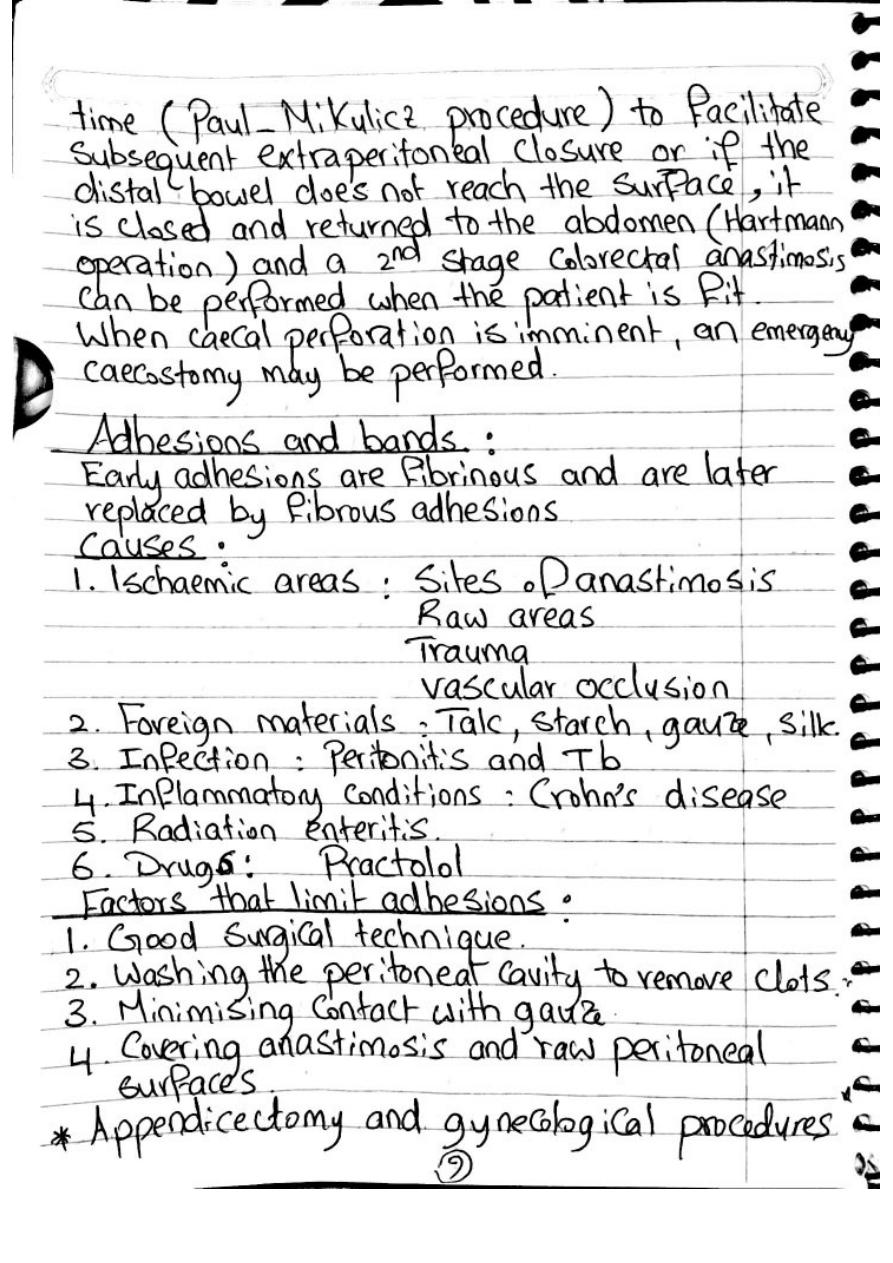 time (Paul-Mikulicz procedure) to facilitate
subsequent extraperitoneal closure or if the
distal bowel does not reach the surface, it
is closed and returned to the abdomen (Hartmann
operation) and a 2nd stage colorectal anastimosis
can be performed when the patient is fit.
When caecal perforation is imminent, an emergency
caecostomy may be performed.
Adhesions and bands :
Early adhesions are fibrinous and are later
replaced by fibrous adhesions
Causes :
1. Ischaemic areas : Sites of anastimosis
Raw areas
Trauma
vascular occlusion
2. Foreign materials : Talc, starch, gauze, silk.
3. Infection : Peritonitis and Tb
4. Inflammatory conditions : Crohn's disease
5. Radiation enteritis.
6. Drugs : Practolol
Factors that limit adhesions :
1. Good surgical technique.
2. Washing the peritoneal cavity to remove clots.
3. Minimising contact with gauze.
4. Covering anastimosis and raw peritoneal
surfaces.
* Appendicectomy and gynecological procedures
9